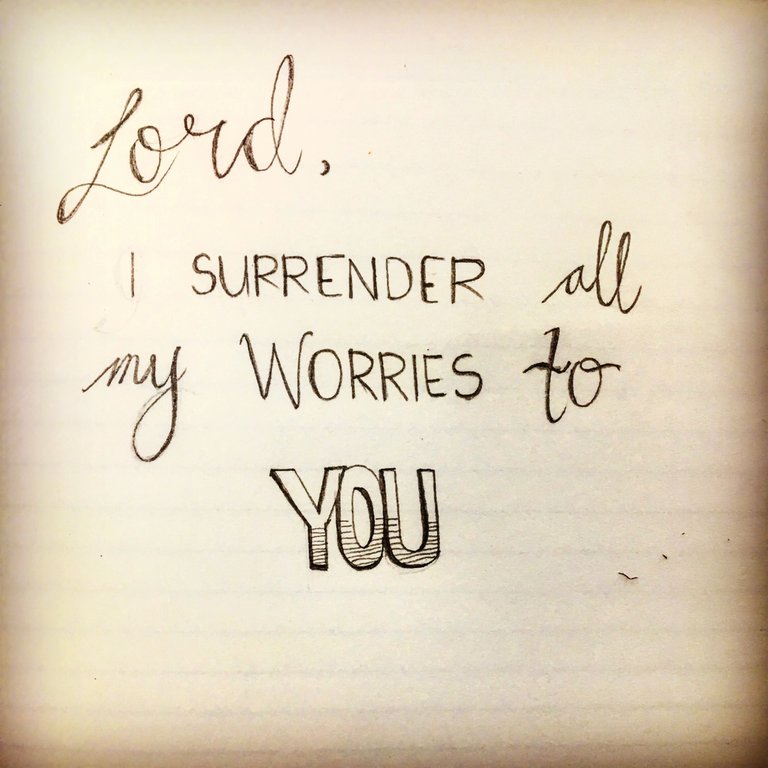 Lord,
I SURRENDER all
my WORRIES to
YOU